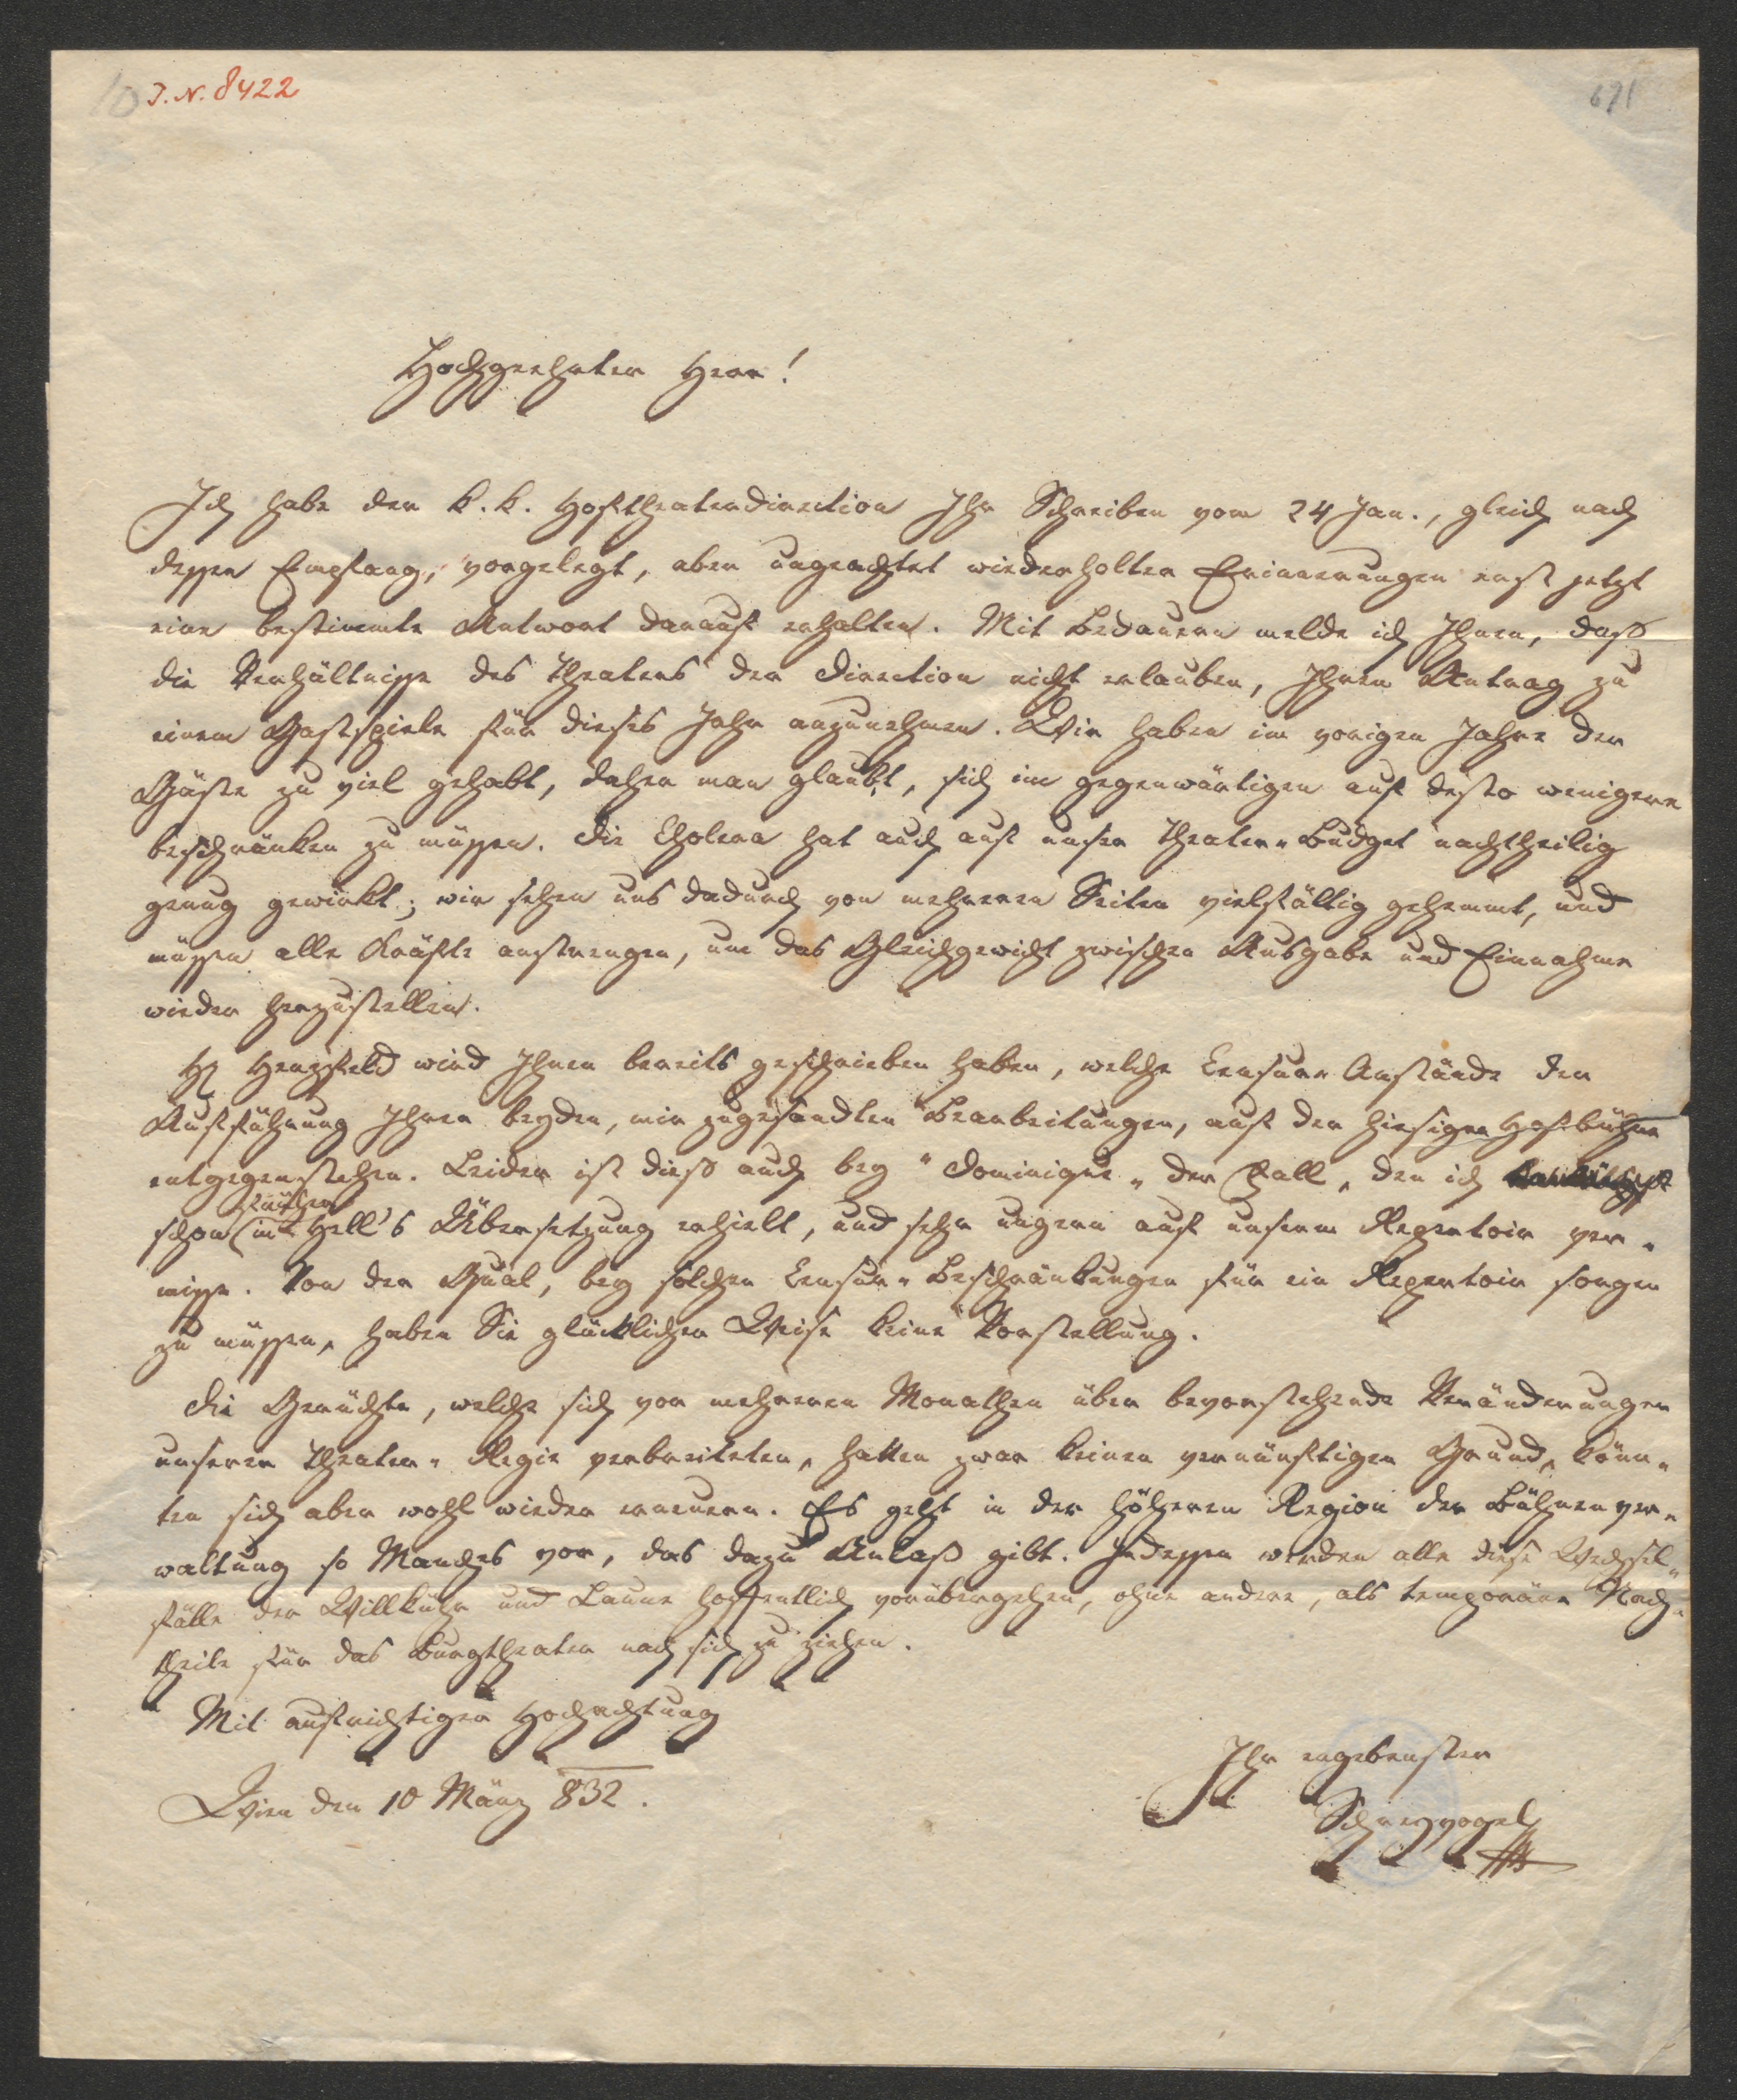 10 I.N. 8422
691
Hochgeehrter Herr!
Ich habe der k. k. Hoftheaterdirection Ihr Schreiben vom 24 Jan., gleich nach
dessen Empfang, vorgelegt, aber ungeachtet wiederholter Erinnerungen erst jetzt
eine bestimmte Antwort darauf erhalten. Mit Bedauern melde ich Ihnen, daß
die Verhältnisse des Theaters der Direction nicht erlauben, Ihren Antrag zu
einem Gastspiele für dieses Jahr anzunehmen. Wir haben im vorigen Jahre der
Gäste zu viel gehabt, daher man glaubt, sich im gegenwärtigen auf desto wenigere
beschränken zu müssen. Die Cholera hat auch auf unser Theater-Budget nachtheilig
genug gewirkt; wir sehen uns dadurch von mehreren Seiten vielfältig gehemmt, und
müssen alle Kräfte anstrengen, um das Gleichgewicht zwischen Ausgabe und Einnahme
wieder herzustellen.
H Herzfeld wird Ihnen bereits geschrieben haben, welche Censur-Anstände der
Aufführung Ihrer beyden, mir zugesandten Bearbeitungen, auf der hiesigen Hofbühne
entgegenstehen. Leider ist dieß auch bey "Dominique" der Fall, den ich
früher
schon in Hell's Übersetzung erhielt, und sehr ungern auf unserm Repertoir ver-
misse. Von der Qual, bey solchen Censur-Beschränkungen für ein Repertoir sorgen
zu müssen, haben Sie glücklicher Weise keine Vorstellung.
Die Gerüchte, welche sich vor mehreren Monathen über bevorstehende Veränderungen
unserer Theater-Regie verbreiteten, hatten zwar keinen vernünftigen Grund, könn-
ten sich aber wohl wieder erneuern. Es geht in der höheren Region der Bühnenver-
waltung so Manches vor, das dazu Anlaß gibt. Indessen werden alle diese Wechsel-
fälle der Willkühr und Laune hoffentlich vorübergehen, ohne andere, als temporäre Nach-
theile für das Burgtheater nach sich zu ziehen.
Mit aufrichtiger Hochachtung
Ihr ergebenster
Wien den 10 März 832.
Schreyvogel